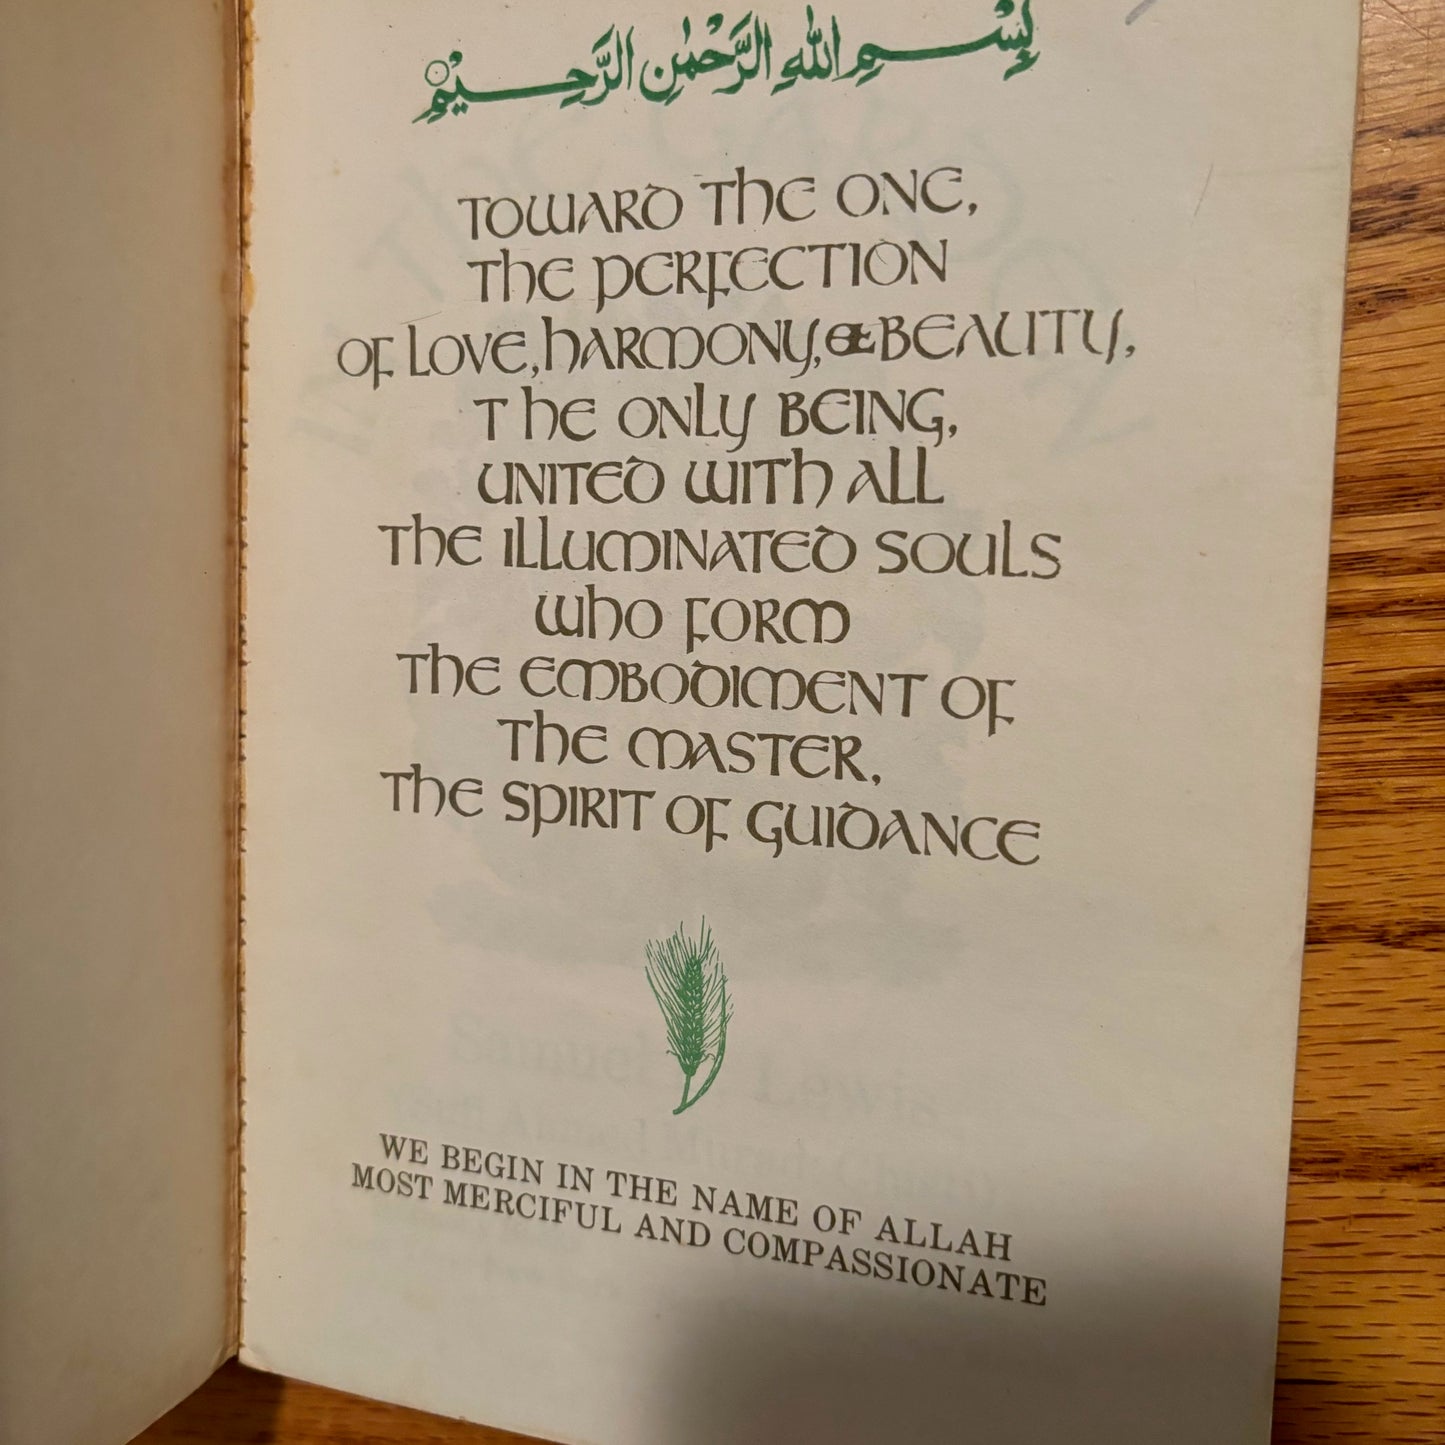 بِسْمِ اللهِ الرَّحْمٰنِ الرَّحِيْمِ
TOWARD THE ONE,
THE PERFECTION
OF LOVE, HARMONY, & BEAUTY,
THE ONLY BEING,
UNITED WITH ALL
THE ILLUMINATED SOULS
WHO FORM
THE EMBODIMENT OF
THE MASTER,
THE SPIRIT OF GUIDANCE
Samuel L. Lewis
WE BEGIN IN THE NAME OF ALLAH
MOST MERCIFUL AND COMPASSIONATE